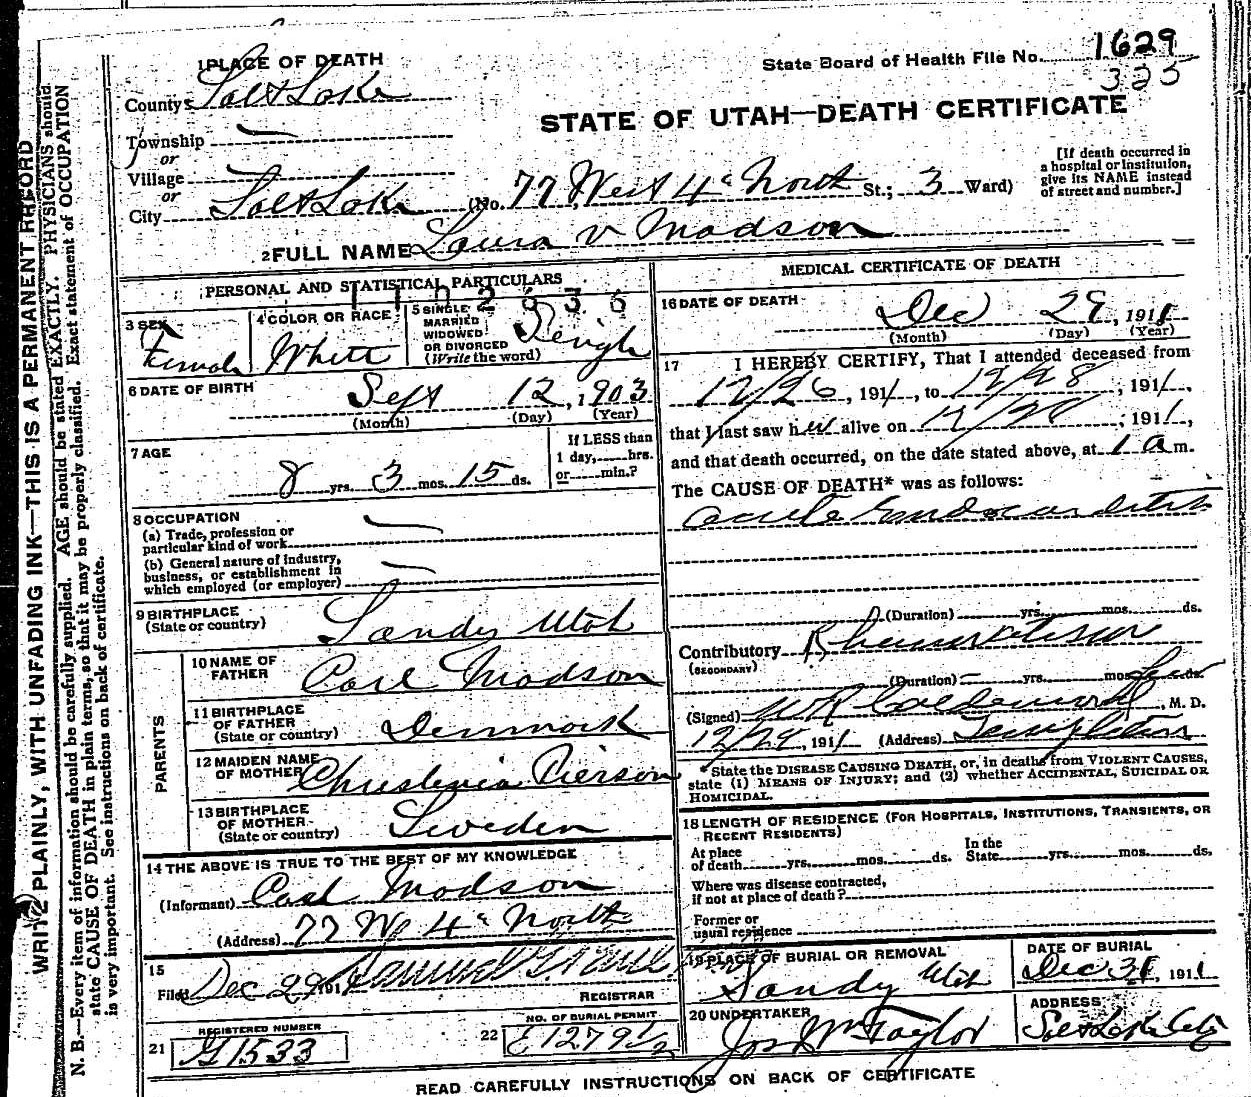 1 PLACE OF DEATH
State Board of Health File No. 1629
325
County Salt Lake
STATE OF UTAH—DEATH CERTIFICATE
Township —
or
Village
or
City Salt Lake (No. 77 West 4" North St.; 3 Ward)
[If death occurred in
a hospital or institution,
give its NAME instead
of street and number.]
2 FULL NAME Laura V Madson
PERSONAL AND STATISTICAL PARTICULARS
3 SEX
Female
4 COLOR OR RACE
White
5 SINGLE
MARRIED
WIDOWED
OR DIVORCED
(Write the word)
Single
6 DATE OF BIRTH
Sept 12, 1903
(Month) (Day) (Year)
7 AGE
8 yrs. 3 mos. 15 ds.
If LESS than
1 day, hrs.
or min.?
8 OCCUPATION
(a) Trade, profession or
particular kind of work —
(b) General nature of industry,
business, or establishment in
which employed (or employer) —
9 BIRTHPLACE
(State or country) Sandy Utah
PARENTS
10 NAME OF
FATHER Carl Madson
11 BIRTHPLACE
OF FATHER
(State or country) Denmark
12 MAIDEN NAME
OF MOTHER Pierson
13 BIRTHPLACE
OF MOTHER
(State or country) Sweden
14 THE ABOVE IS TRUE TO THE BEST OF MY KNOWLEDGE
(Informant) Carl Madson
(Address) 77 W 4" North
15
Filed Dec 29 191
REGISTRAR
21 REGISTERED NUMBER
G1533
22 NO. OF BURIAL PERMIT
E 1279 1/2
MEDICAL CERTIFICATE OF DEATH
16 DATE OF DEATH
Dec 29, 1911
(Month) (Day) (Year)
17 I HEREBY CERTIFY, That I attended deceased from
12/26, 1911, to 12/28, 1911,
that I last saw her alive on 12/28, 1911,
and that death occurred, on the date stated above, at 1 a m.
The CAUSE OF DEATH* was as follows:
acute Endocarditis
(Duration) yrs. mos. ds.
Contributory Rheumatism
(SECONDARY)
(Duration) yrs. mos. ds.
(Signed) M. D.
12/29, 1911 (Address) Templeton
*State the DISEASE CAUSING DEATH, or, in deaths from VIOLENT CAUSES,
state (1) MEANS OF INJURY; and (2) whether ACCIDENTAL, SUICIDAL OR
HOMICIDAL.
18 LENGTH OF RESIDENCE (FOR HOSPITALS, INSTITUTIONS, TRANSIENTS, OR
RECENT RESIDENTS)
At place
of death yrs. mos. ds.
In the
State yrs. mos. ds.
Where was disease contracted,
if not at place of death?
Former or
usual residence
19 PLACE OF BURIAL OR REMOVAL
Sandy Utah
DATE OF BURIAL
Dec 31, 1911
20 UNDERTAKER
Jos Wm Taylor
ADDRESS
Salt Lake City
READ CAREFULLY INSTRUCTIONS ON BACK OF CERTIFICATE
WRITE PLAINLY, WITH UNFADING INK—THIS IS A PERMANENT RECORD
N. B.—Every item of information should be carefully supplied. AGE should be stated EXACTLY. PHYSICIANS should
state CAUSE OF DEATH in plain terms, so that it may be properly classified. Exact statement of OCCUPATION
is very important. See instructions on back of certificate.